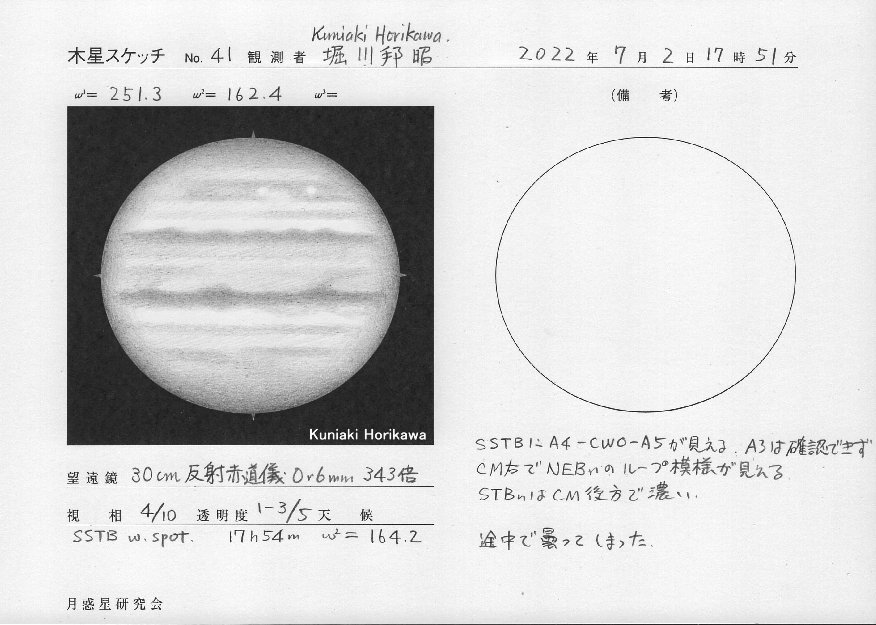 Kuniaki Horikawa.
木星スケッチ No. 41 観測者 堀川邦昭 2022年 7月 2日 17時 51分
ω¹= 251.3 ω²= 162.4 ω³=
(備 考)
Kuniaki Horikawa
SSTBにA4-CWO-A5が見える. A3は確認できず
CM左でNEBnのループ模様が見える.
STBnはCM後方で濃い.
途中で曇ってしまった.
望遠鏡 30cm反射赤道儀 Or6mm 343倍
視 相 4/10 透明度 1-3/5 天 候
SSTB w. spot. 17h54m ω²= 164.2
月惑星研究会